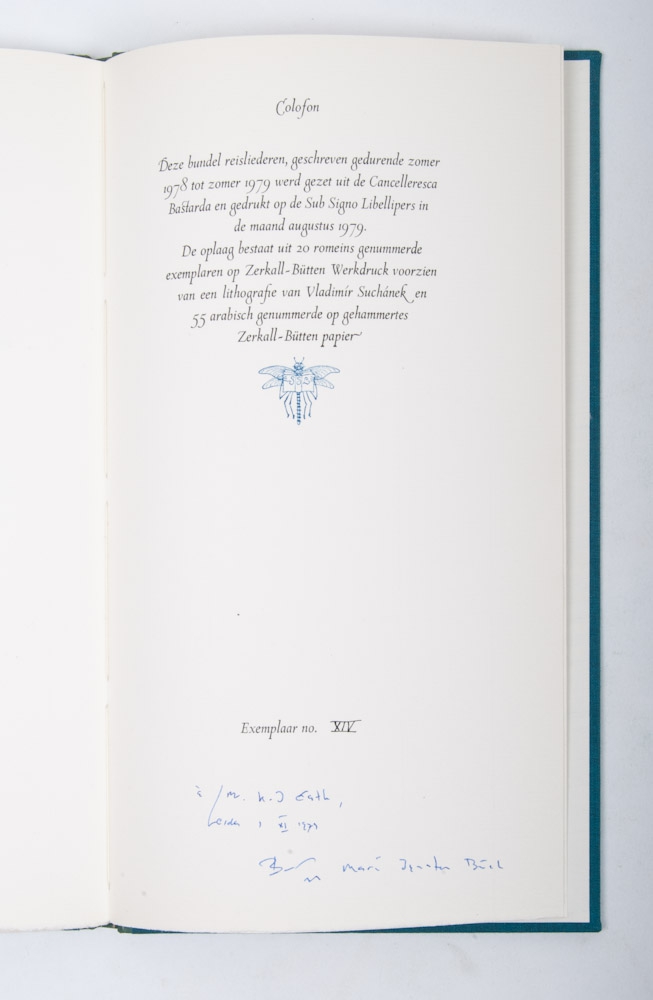 Colofon
Deze bundel reisliederen, geschreven gedurende zomer
1978 tot zomer 1979 werd gezet uit de Cancelleresca
Bastarda en gedrukt op de Sub Signo Libellipers in
de maand augustus 1979.
De oplaag bestaat uit 20 romeins genummerde
exemplaren op Zerkall-Bütten Werkdruck voorzien
van een lithografie van Vladimír Suchánek en
55 arabisch genummerde op gehamertes
Zerkall-Bütten papier
Exemplaar no. XIV
à
1 XI 1979
Büch